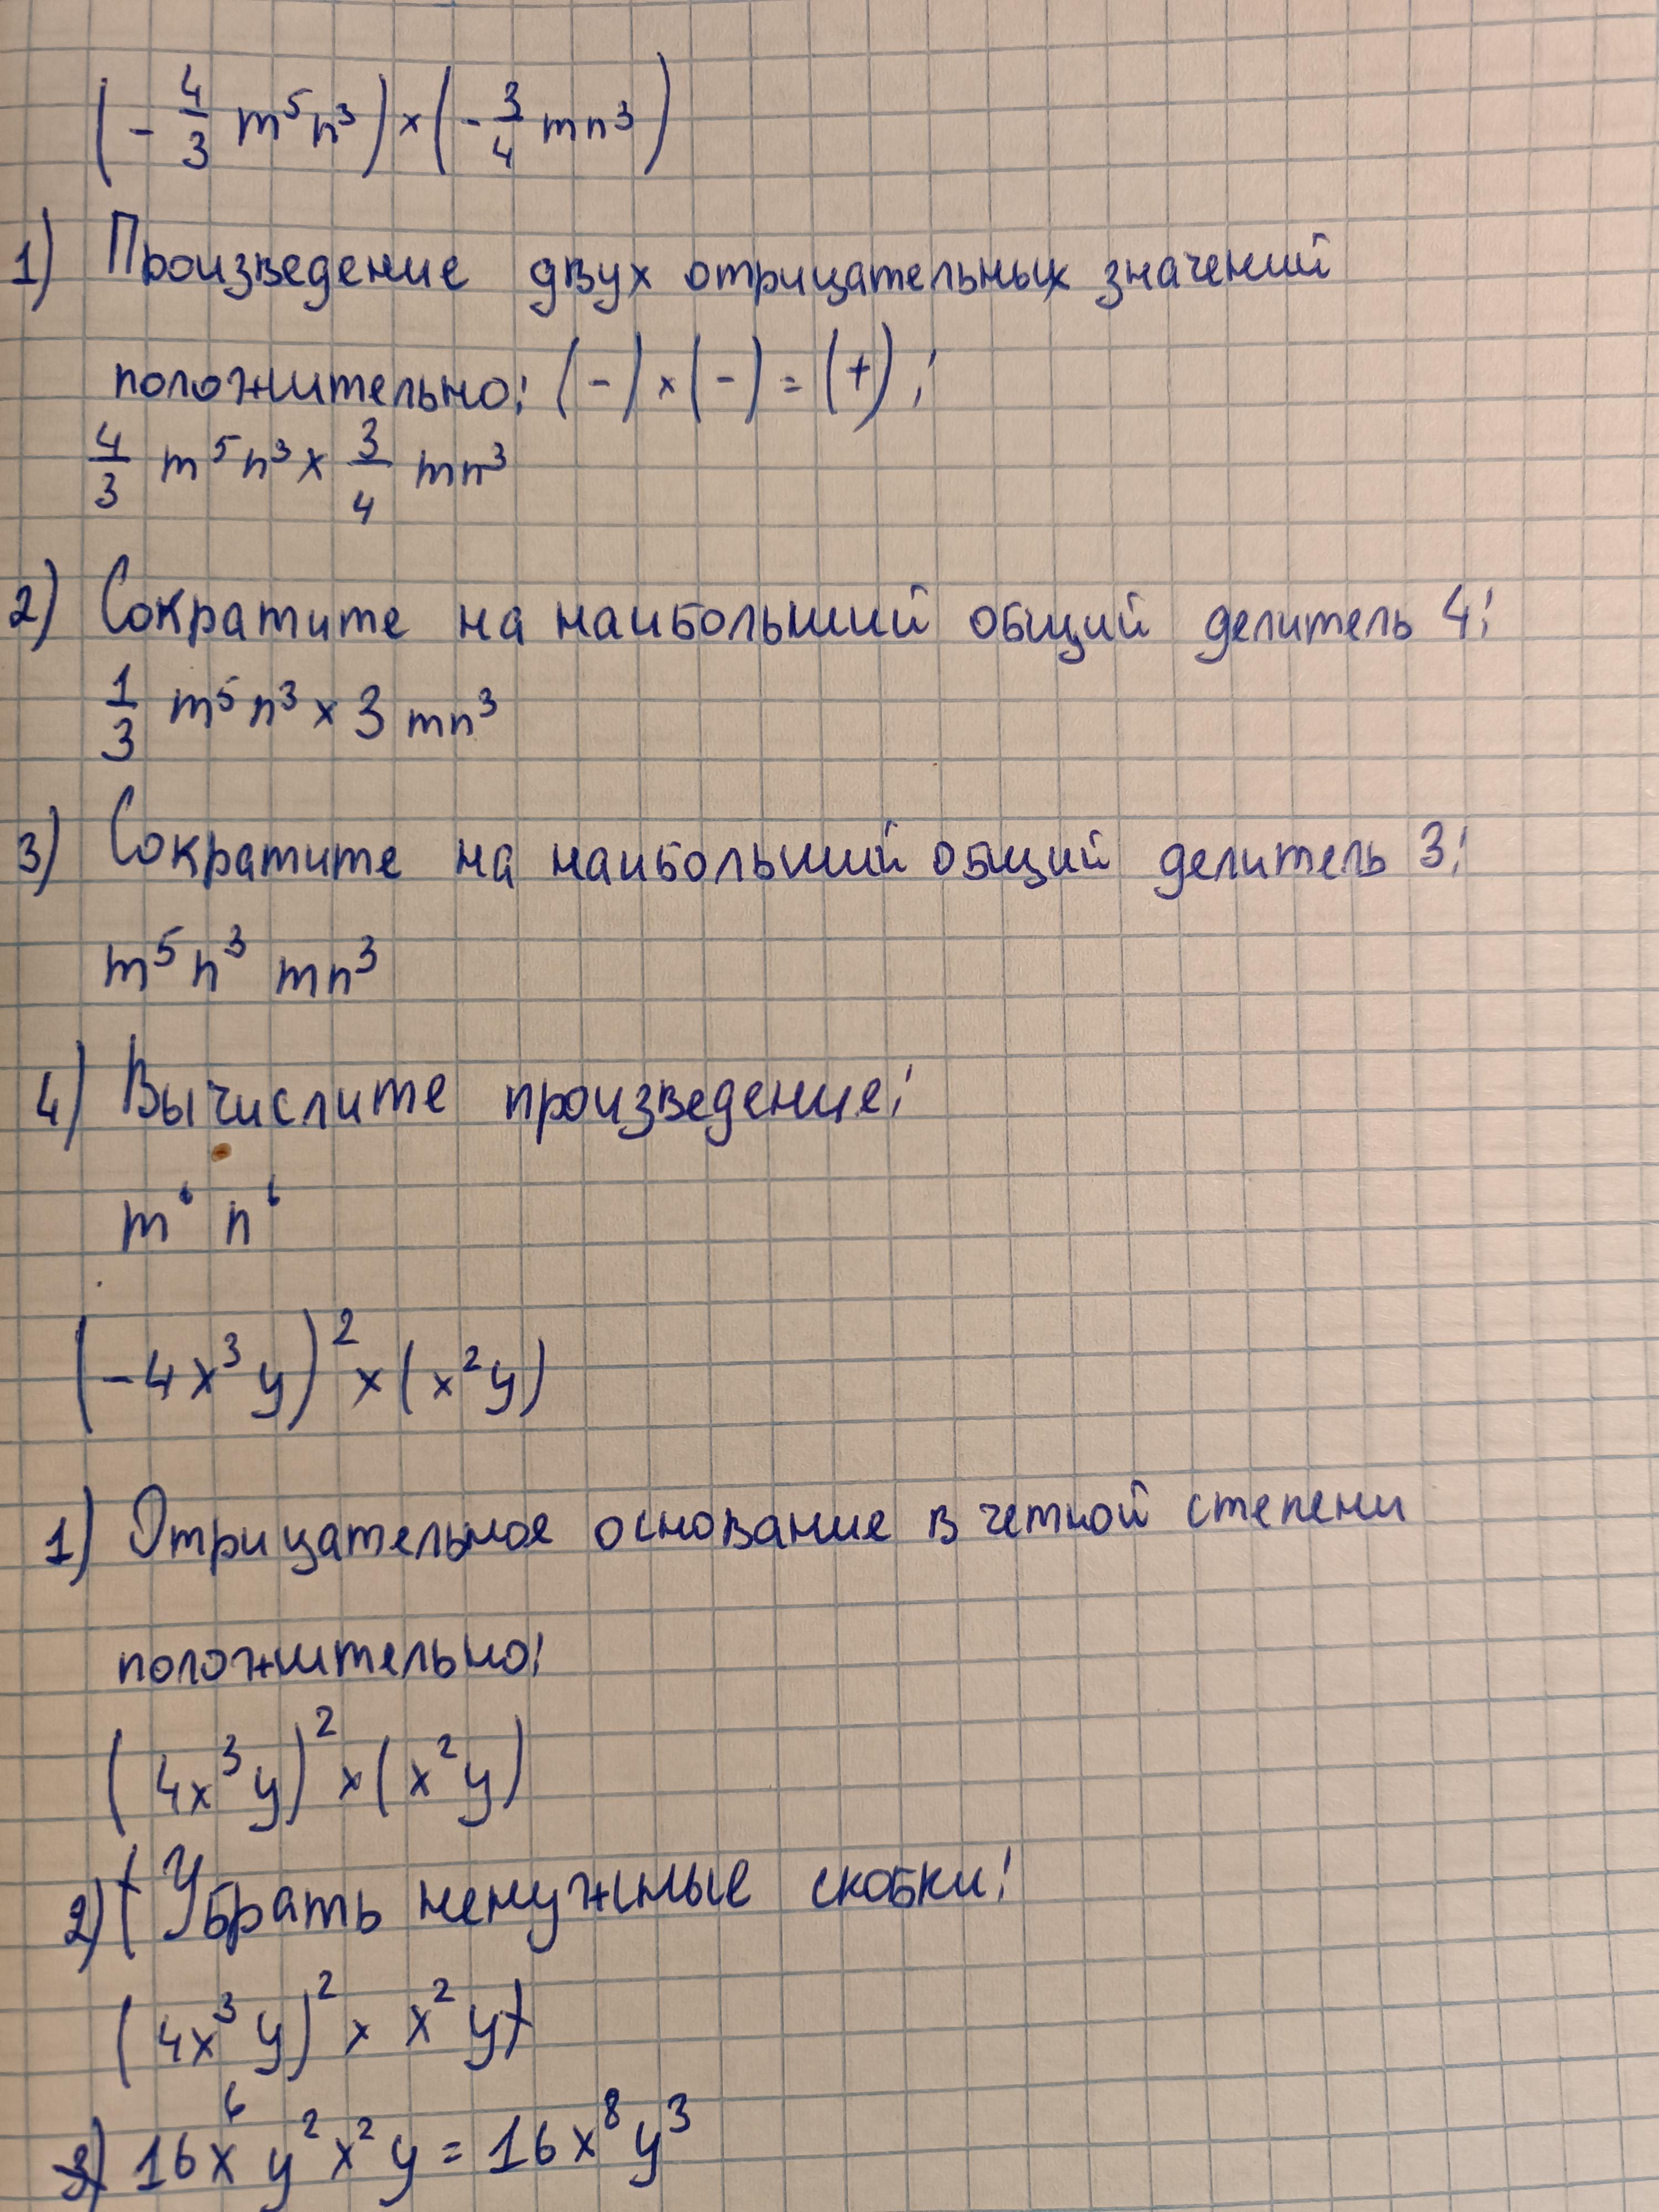 (-4/3 m⁵n³)×(-3/4 mn³)
1) Произведение двух отрицательных значений
положительно: (-)×(-)=(+);
4/3 m⁵n³×3/4 mn³
2) Сократите на наибольший общий делитель 4:
1/3 m⁵n³×3mn³
3) Сократите на наибольший общий делитель 3:
m⁵n³ mn³
4) Вычислите произведение:
m⁶ n⁶
(-4x³y)²×(x²y)
1) Отрицательное основание в четной степени
положительно:
(4x³y)²×(x²y)
2) Убрать ненужные скобки:
(4x³y)²×x²y
3) 16x⁶y²x²y=16x⁸y³